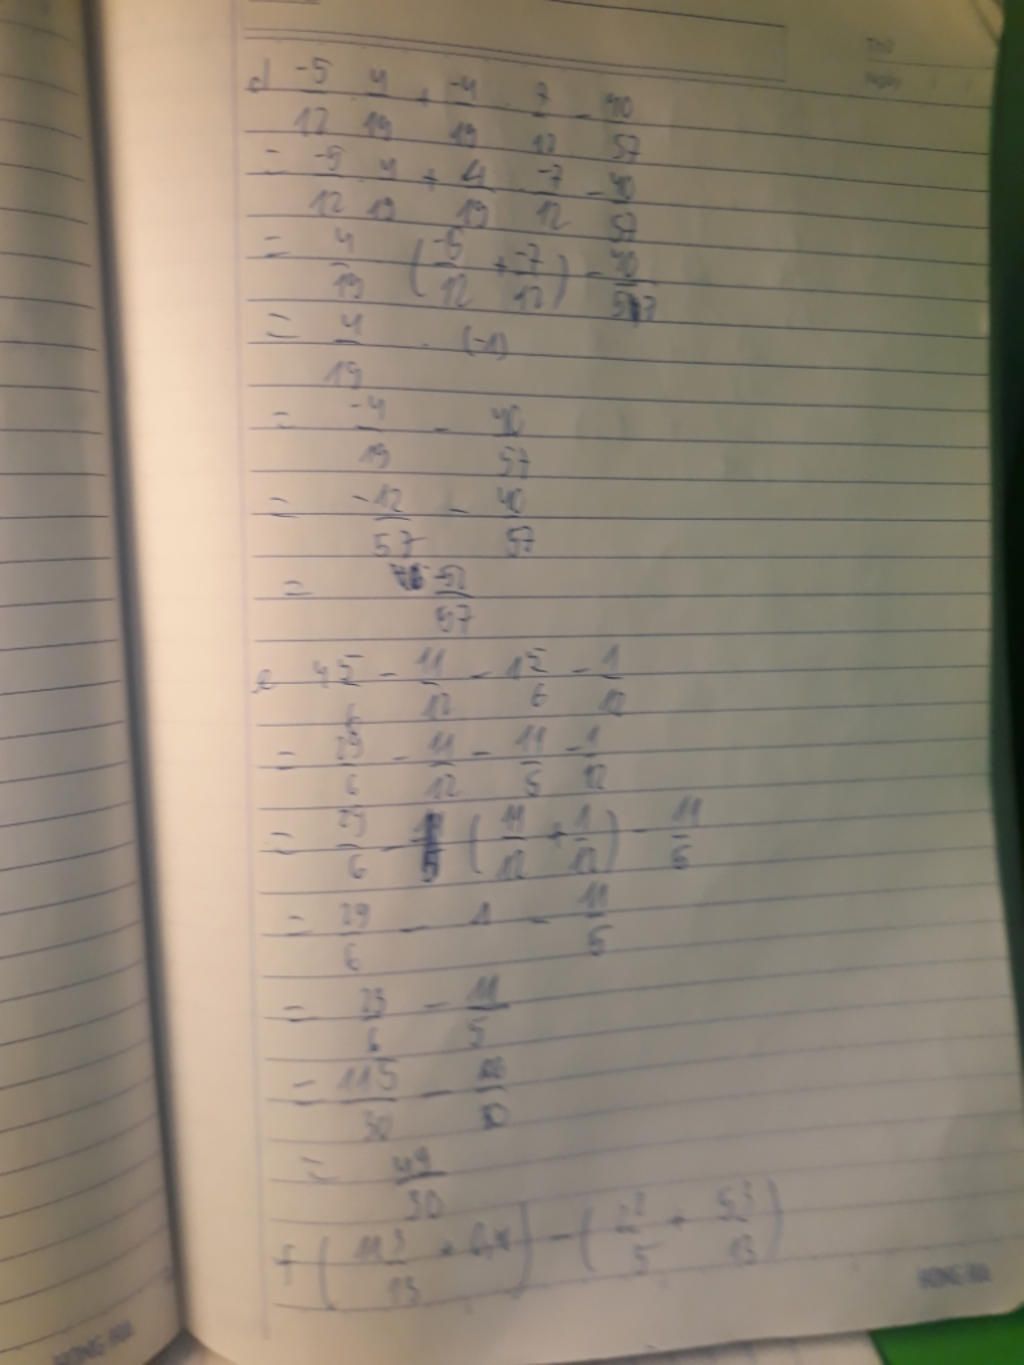 Thứ
Ngày
d -5/12 . 4/19 + -4/19 . 7/12 - 40/57
= -5/12 . 4/19 + 4/19 . -7/12 - 40/57
= 4/19 (-5/12 + -7/12) - 40/57
= 4/19 . (-1)
= -4/19 - 40/57
= -12/57 - 40/57
= -52/57
e 4 5/6 - 11/12 - 1 5/6 - 1/12
= 29/6 - 11/12 - 11/5 - 1/12
= 29/6 - (11/12 + 1/12) - 11/5
= 29/6 - 1 - 11/5
= 23/6 - 11/5
= 115/30 - 66/30
= 49/30
f (11 3/13 + 0,4) - (2 2/5 + 5 3/13)
HONG HA
HONG HA